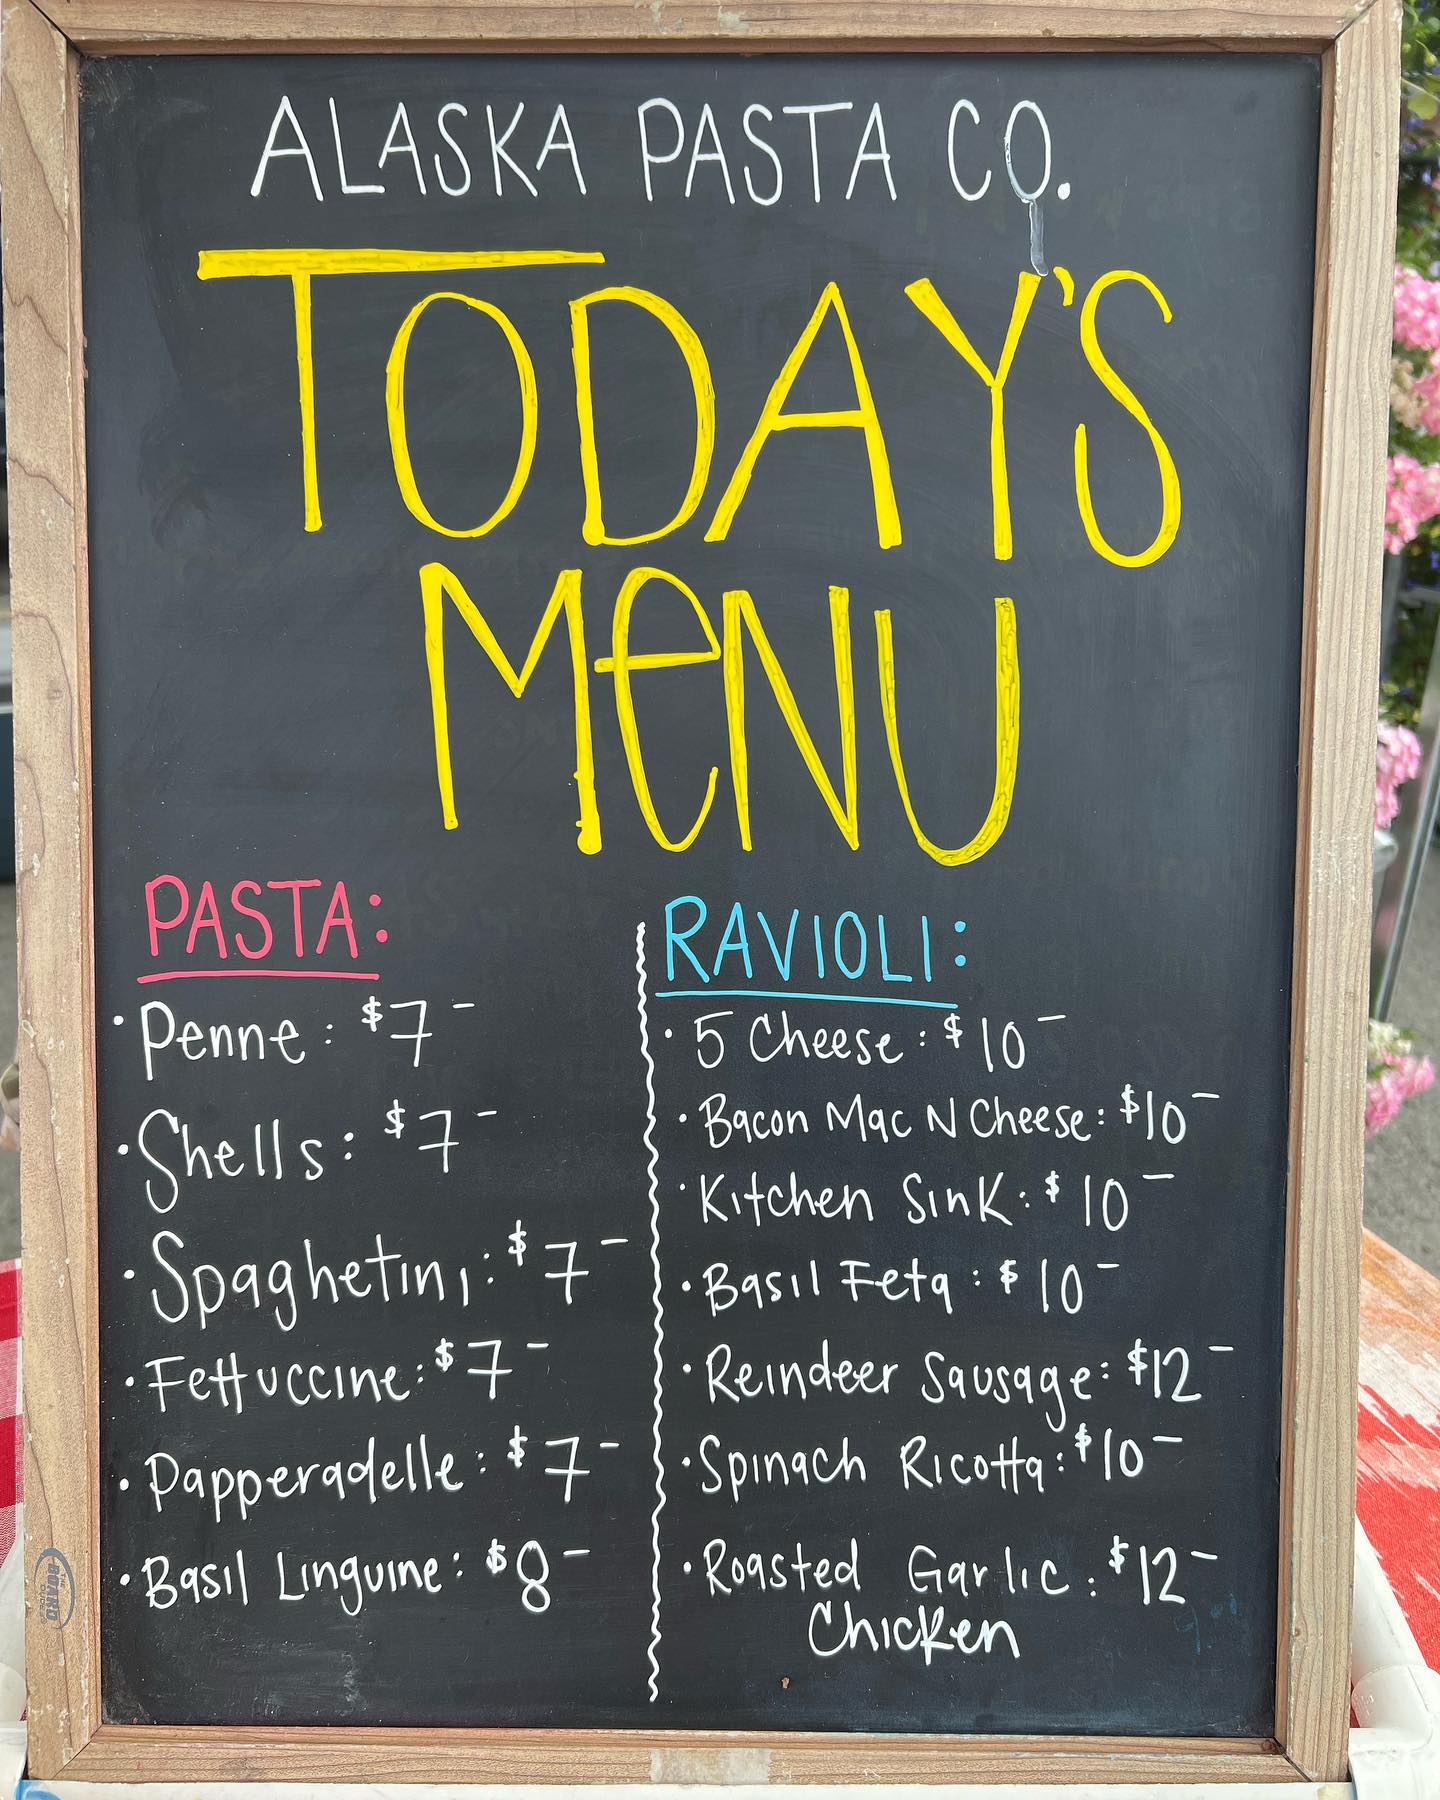 ALASKA PASTA CO.
TODAY'S
MeNU
PASTA:
• Penne: $7-
• Shells: $7-
• Spaghetini: $7-
• Fettuccine: $7-
• Papperadelle: $7-
• Basil Linguine: $8-
RAVIOLI:
• 5 Cheese: $10-
• Bacon Mac N Cheese: $10-
• Kitchen Sink: $10-
• Basil Feta: $10-
• Reindeer Sausage: $12-
• Spinach Ricotta: $10-
• Roasted Garlic: $12-
Chicken